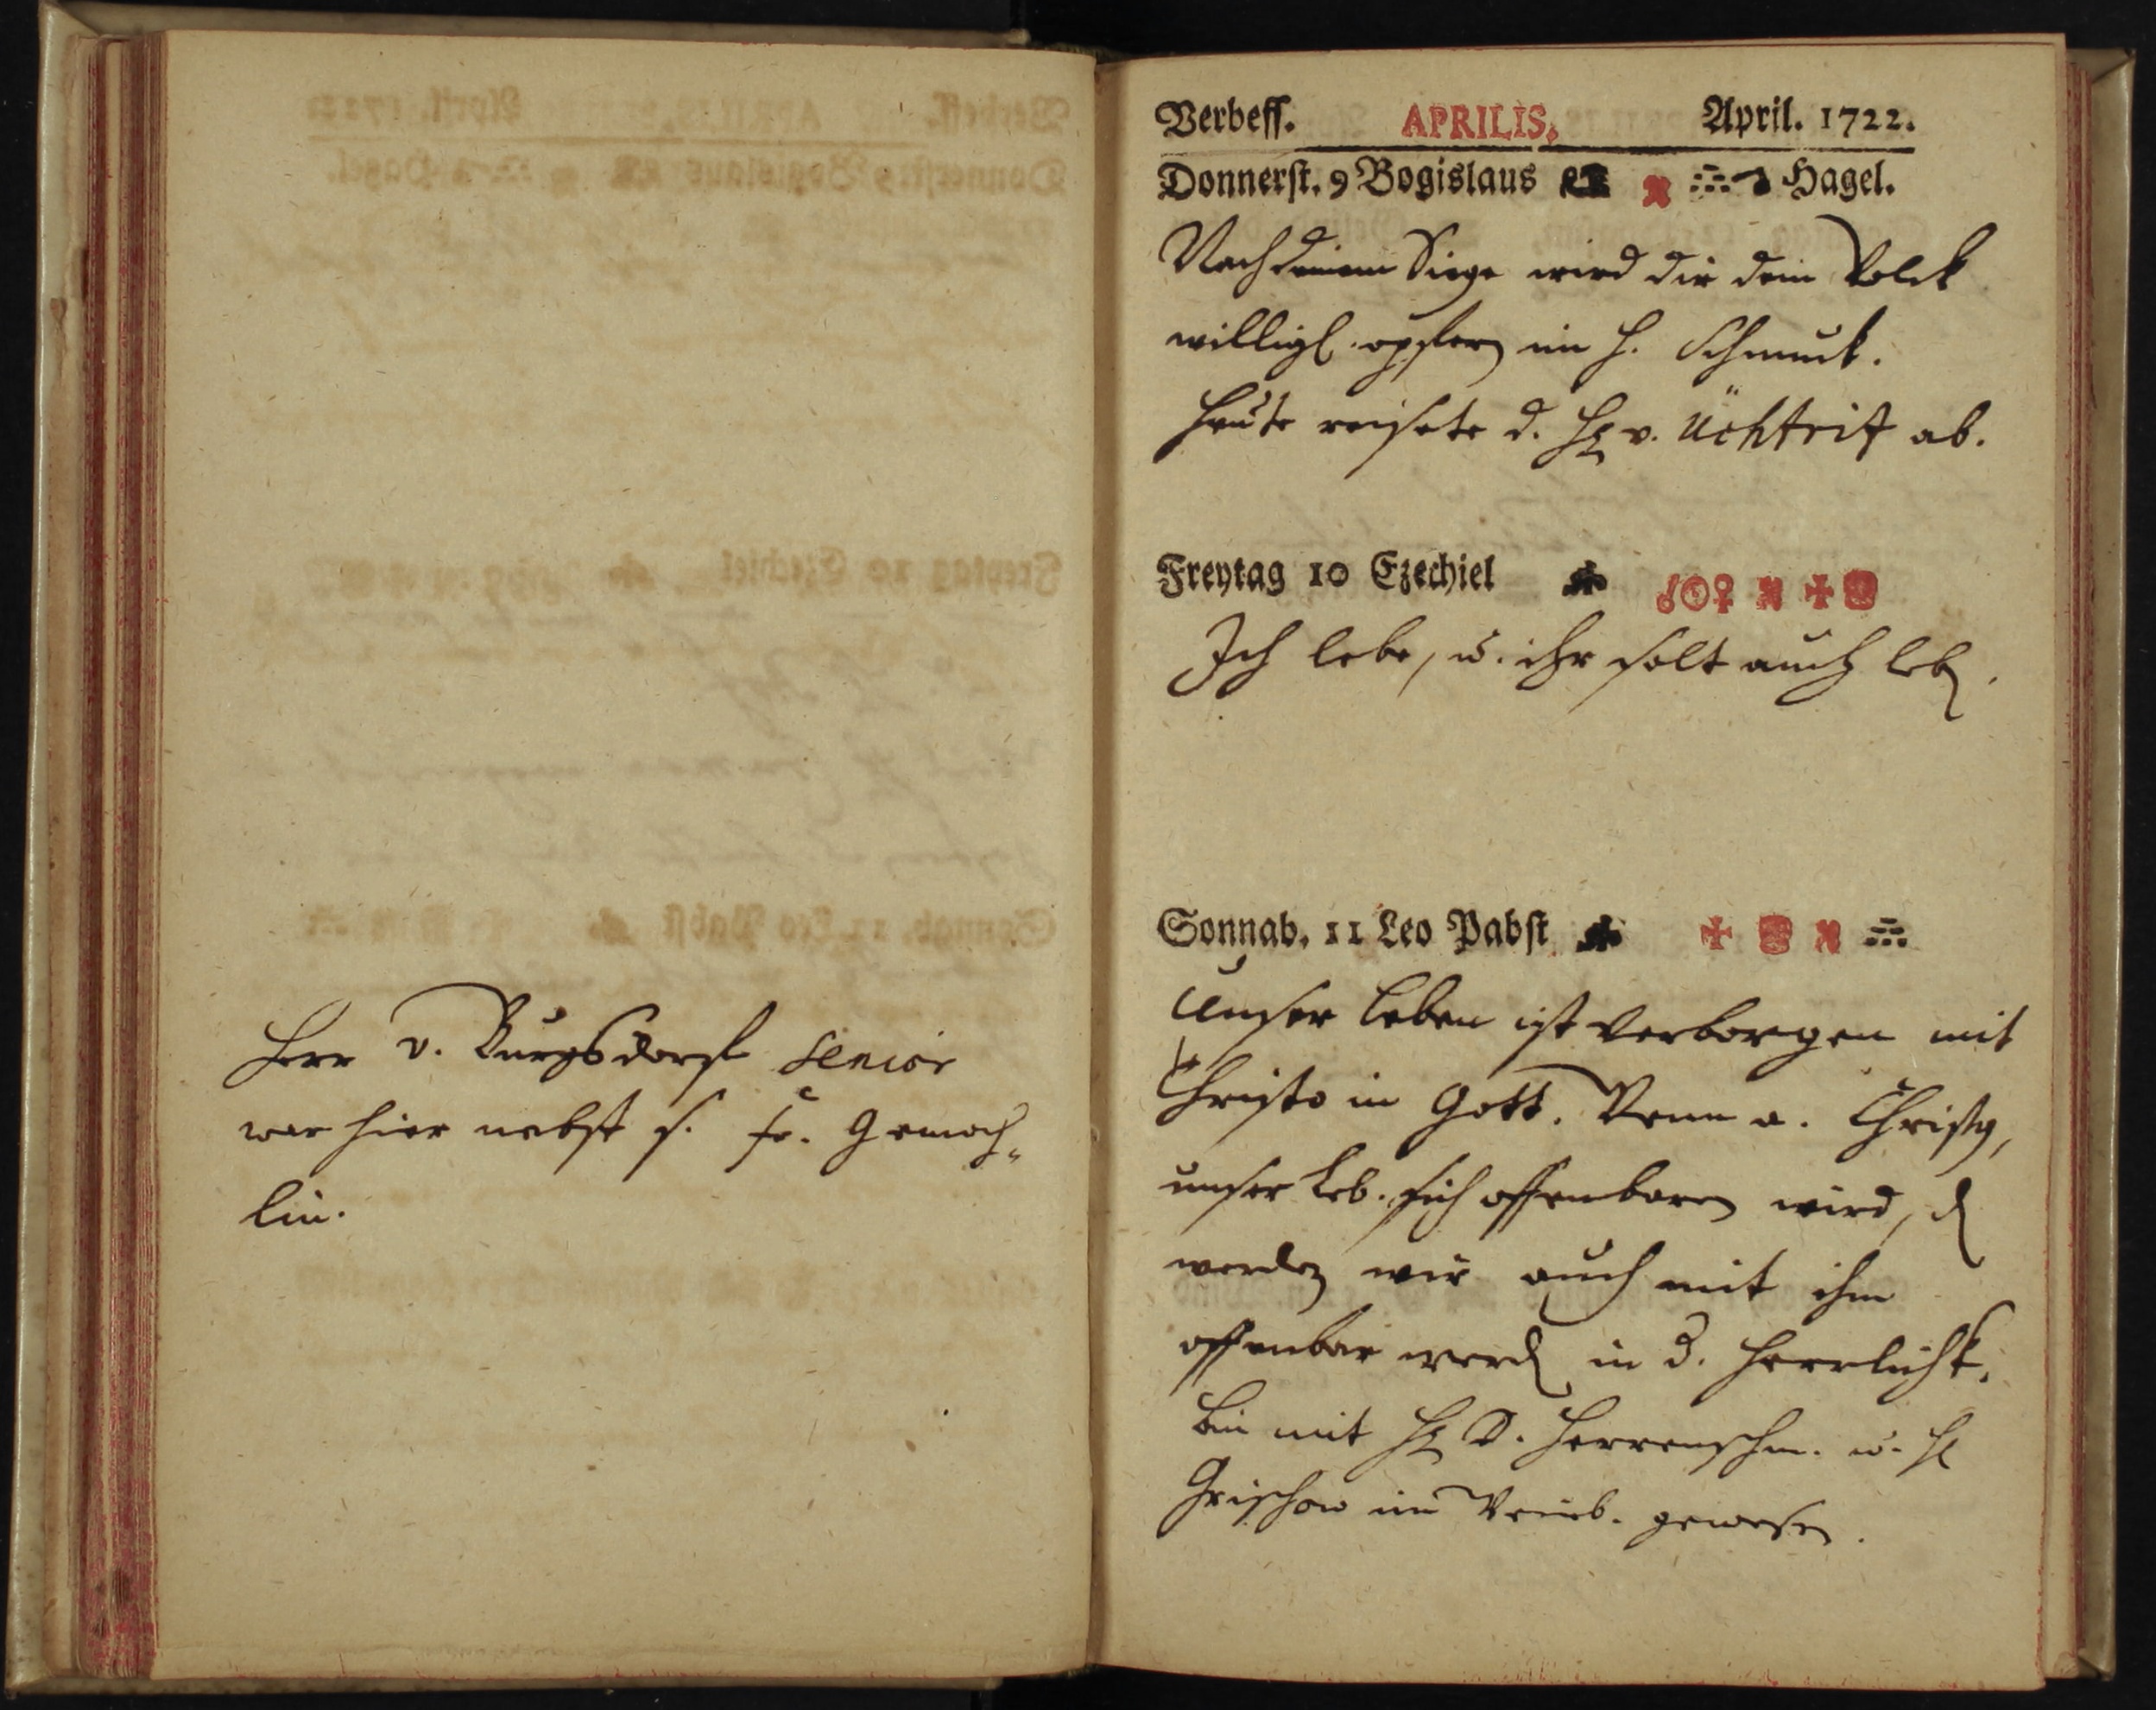 Herr v. Burgsdorf Senior
war hier nebst s. fr. Gemah-
lin.
Verbess. APRILIS. April. 1722.
Donnerst. 9 Bogislaus Hagel.
Nach deinem Siege wird dir dein Volck
willigl. opfern im h. Schmuck.
Heute reisete d. H. v. Üchtrit ab.
Freytag 10 Ezechiel
Ich lebe, u. ihr solt auch leb.
Sonnab. 11 Leo Pabst
Unser Leben ist verborgen mit
Christo in Gott. Wenn a. Christ,
unser Leb. sich offenbaren wird, d
werden wir auch mit ihm
offenbar werd in d. Herrlichk.
Bin mit H D. Herrenschm. u. H
Grischow im gewesen.